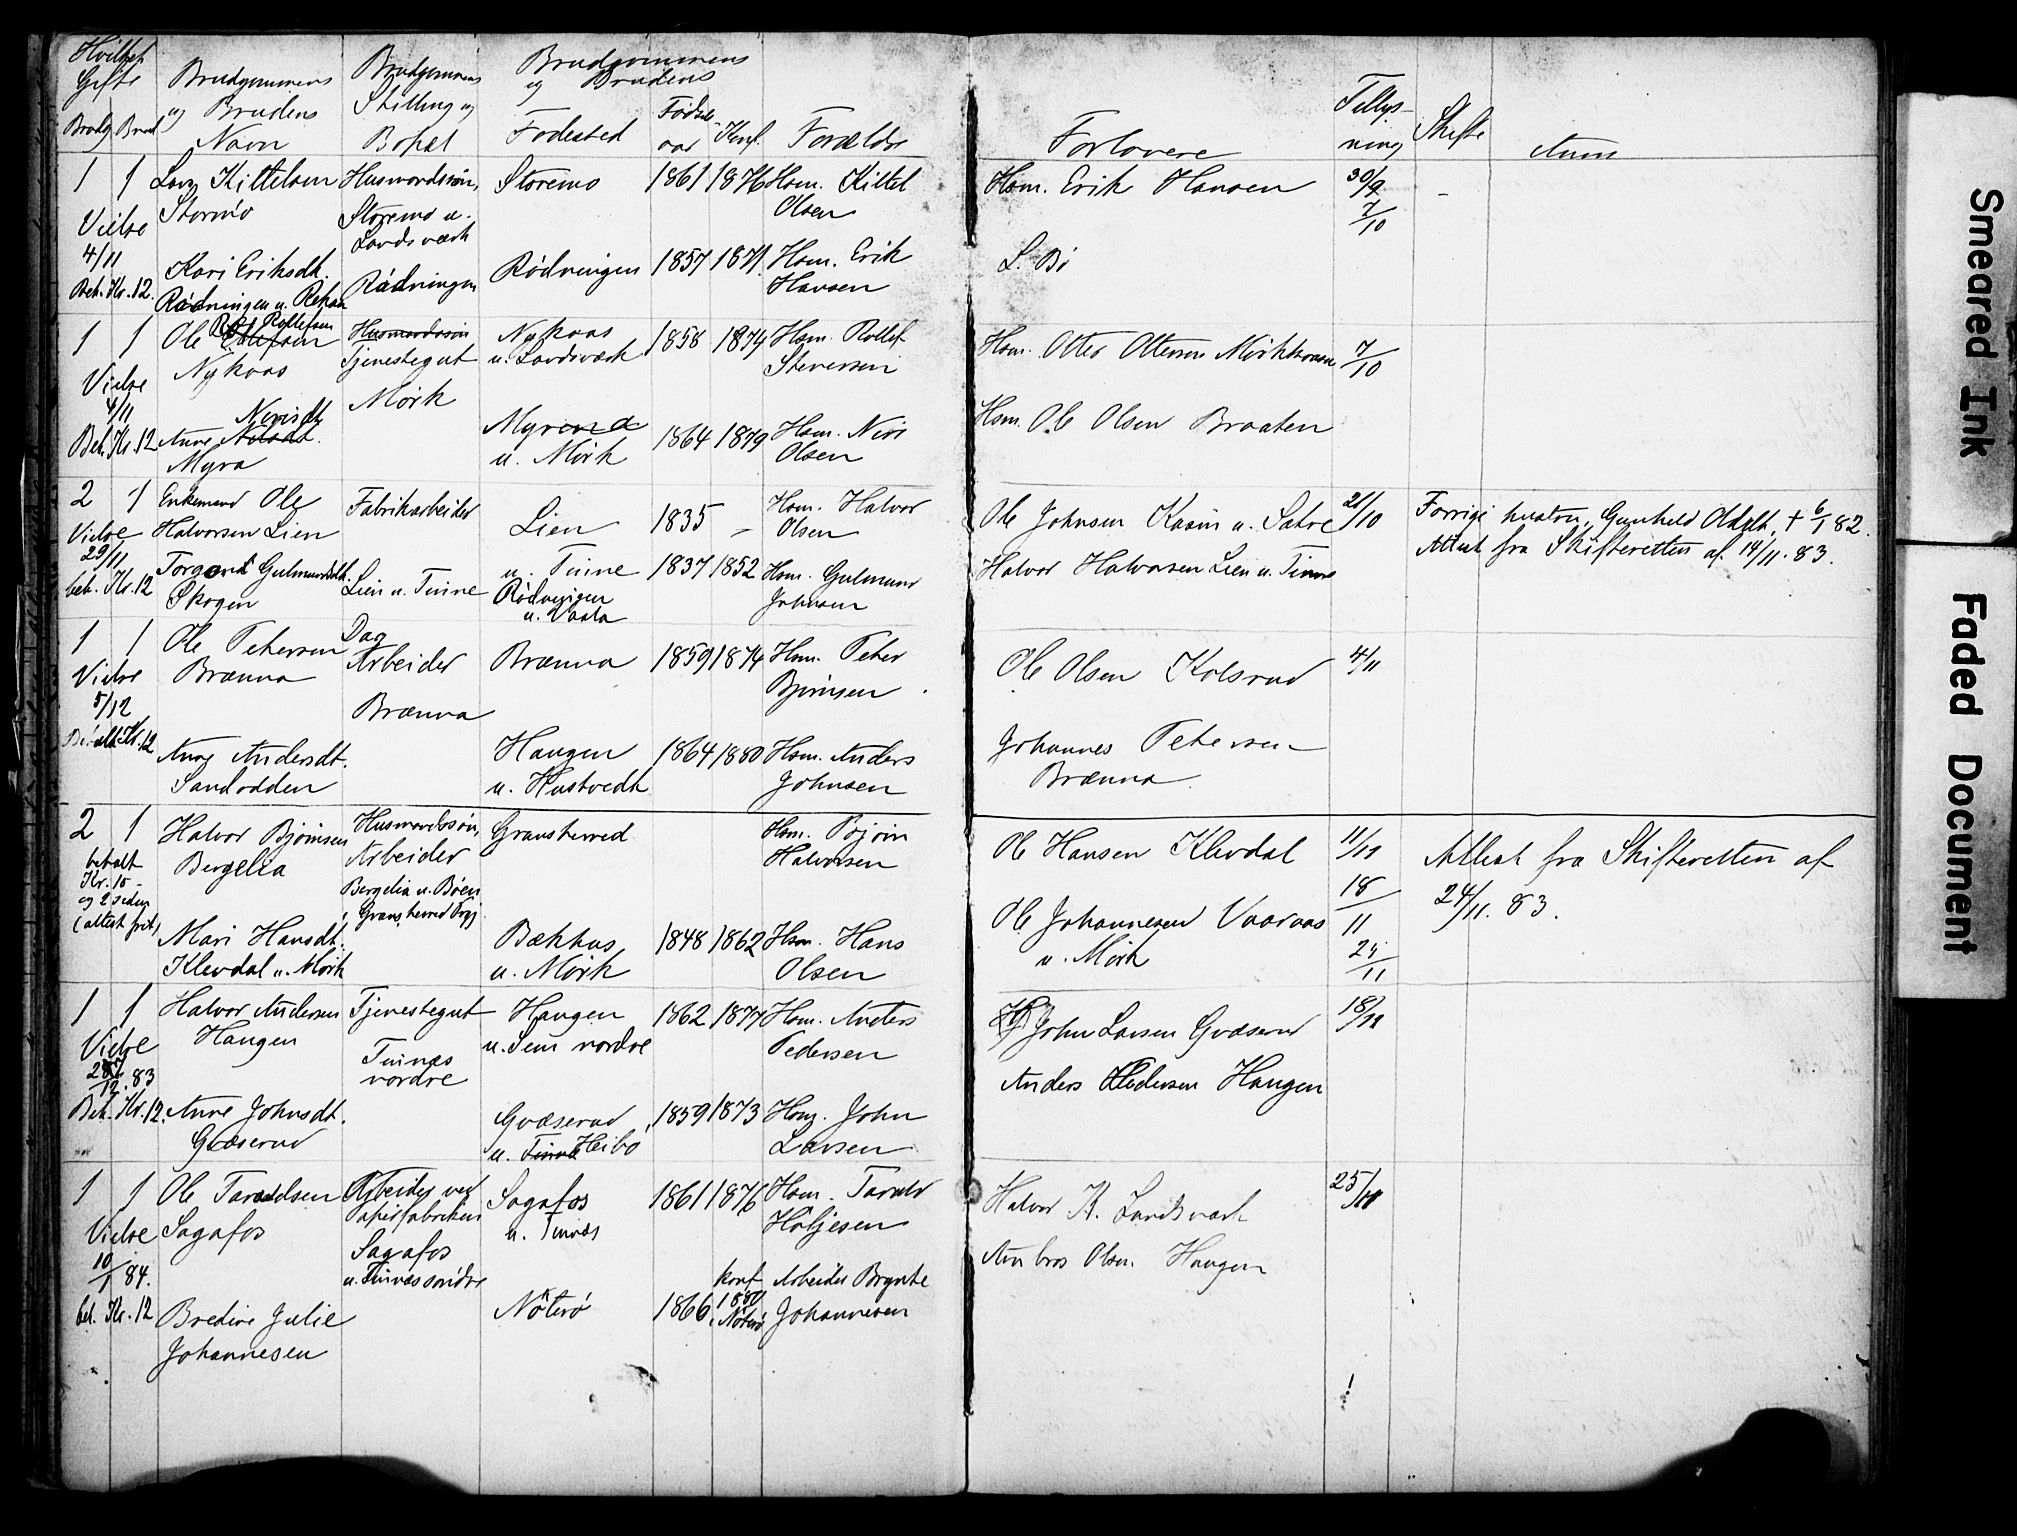 Hvilket
Gifte
Brudg. Brud
Brudgommens
og Brudens
Navn
Brudgommens
Stilling og
Bopæl
Brudgommens
og Brudens
Fødested
Fødsels-
aar
Konf.
Forældre
Forlovere
Tillys-
ning
Skifte
Anm
1 1
Vielse
4/11
Bet. Kr. 12.
Lars Kittelsen
Stormo
Husmandssøn,
Storemo u.
Landsværk
Storemo
1861 1876 Hsm. Kittel
Olsen
Hsm. Erik Hansen
30/9
7/10
-
Kari Eriksdt.
Rødningen u.
Rødningen
Rødningen
1857 1871. Hsm. Erik
Hansen
L. Bö
1 1
Vielse
4/11
Bet. Kr. 12
Ole Rollefsen
Nykaas
Husmandssøn
Tjenestegut
Mörk
Nykaas
u. Landsværk
1858 1874 Hsm. Rollef
Steversen
Hsm. Otter Ottersen
7/10
Nirisdt
Anne Nilsdt.
Myra
Myren
u. Mörk
1864 1879 Hsm. Niri
Olsen
Hsm. Ole Olsen Braaten
2 1
Vielse
29/11
bet. Kr. 12
Enkemand Ole
Halvorsen Lien
Fabrikarbeider
Lien
u. Tinne
1835 -
Hsm. Halvor
Olsen
Ole Johnsen Kaasin u. Satre
21/10
Forrige hustru, Gunhild Olsdt. + 6/1 82.
Attest fra Skifteretten af 14/11. 83.
Torgond Gulmundsdt.
Skogen
Lien u. Tinne
Rødningen
u. Vaala
1837 1852 Hsm. Gulmund
Johnsen
Halvor Halvorsen Lien u. Tinne
1 1
Vielse
5/12
Betalt Kr. 12
Ole Petersen
Brænna
Dag
Arbeider
Brænna
Brænna
1859 1874 Hsm. Peter
Bjørnsen
Ole Olsen Kolsrud
4/11
Anne Andersdt.
Sandodden
Haugen
u. Hustvedt
1864 1880 Hsm. Anders
Johnsen
Johannes Petersen
Brænna
2 1
betalt
Kr. 10 -
og 2 siden
(attest frit)
Halvor Bjørnsen
Bergelia
Husmandssøn,
Arbeider
Bergelia u. Bøen
i Gransherred
Gransherred
Hsm. Bjørn
Halvorsen
Ole Hansen Klevdal
11/11
18/11
25/11
Attest fra Skifteretten af
24/11. 83.
Mari Hansdt.
Klevdal u. Mörk
Bækhus
u. Mörk
1848 1862 Hsm. Hans
Olsen
Ole Johannesen Vaaraas
u. Mörk
1 1
Vielse
28/12. 83
Bet. Kr. 12.
Halvor Andersen
Haugen
Tjenestegut
Tinnæs
nordre
Haugen
u. Sem nordre
1862 1877 Hsm. Anders
Pedersen
John Larsen Gvæserud
18/11
Anne Johnsdt.
Gvæserud
Gvæserud
u. Tinne Heibö
1859 1873 Hsm. John
Larsen
Anders Pedersen Haugen
1 1
Vielse
10/1 84.
bet. Kr. 12
Ole Taraldsen
Sagafos
Arbeider ved
Papirfabriken
Sagafos
u. Tinnæs söndre
Sagafos
u. Tinnæs
1861 1876 Hsm. Tarald
Höljesen
Halvor K. Landsværk
25/11
Bredine Julie
Johannesen
Nöterö
1866
konf.
1880
i Nöterö
Arbeider Brynte
Johannesen
Ambros Olsen Haugen
Smeared Ink
Faded Document